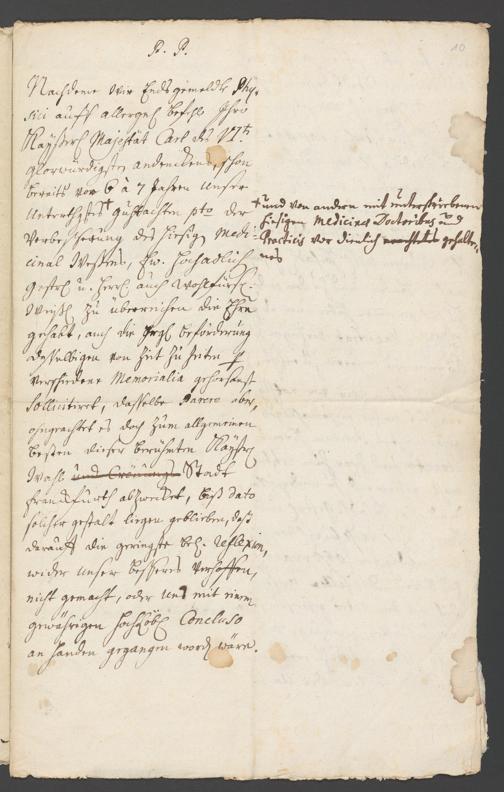 P. P.
10
Nachdeme Wir Endsgemeldte Phy-
sici auff allergn. befehl Ihro
Kayßerl. Majestät Carl des VI.ten
glorwürdigsten andenckens, schon
bereits vor 6 à 7 Jahren unser
Unterthgstes + Guttachten pto der
Verbesserung des hiesigen Medi-
cinal Wesens, Ew. Hochadlich
Gestr. u. Herrl. auch Wohlfürs.
Weißh. zu überreichen die Ehre
gehabt, auch die beförderung
desselbigen von Zeit zu Zeiten p
verschiedene Memorialia gehorsamst
sollicitiret, dasselbe Parere aber,
ohngeachtet es doch zum allgemeinen
besten dieser berühmten Kayßerl.
Wahl und Crönungs Stadt
Franckfurth abzwecket, biß dato
solcher gestalt liegen geblieben, daß
darauff die geringste Reflexion,
wider unser besseres verhoffen,
nicht gemacht, oder uns mit einem
gewährigen Hochlöbl. Concluso
an handen gegangen word. wäre.
+ und von andern mit unterschriebenen
hiesigen Medicinae Doctoribus
Practicis vor dienlich gehalte-
nes